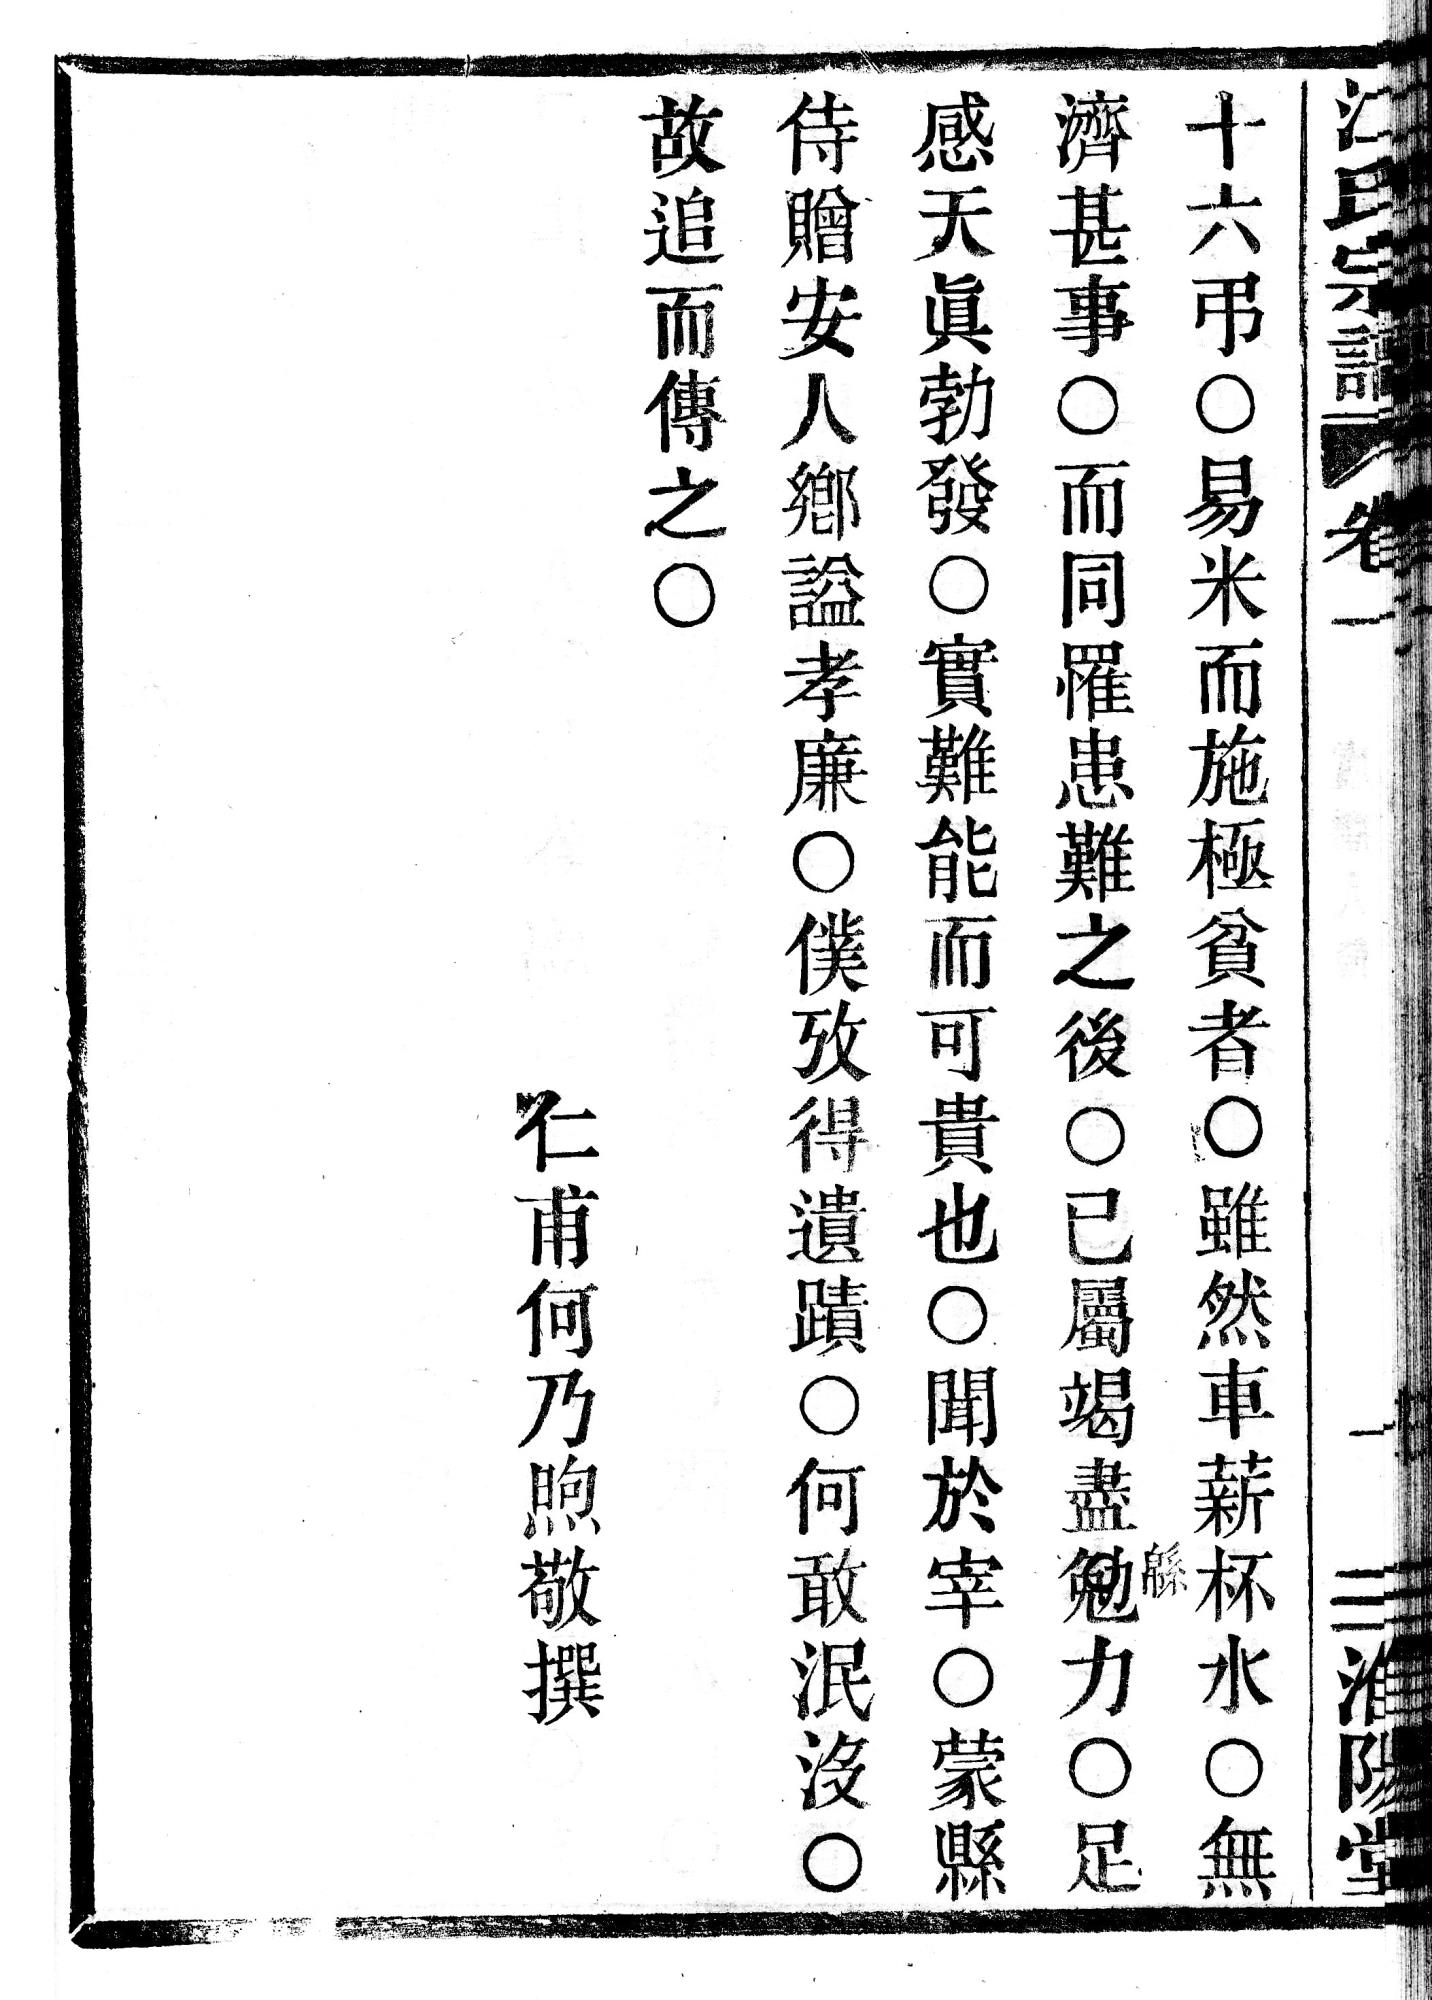 江氏宗譜 卷一 一 二 淮陽堂
十六弔〇易米而施極貧者〇雖然車薪杯水〇無
濟甚事〇而同罹患難之後〇已屬竭盡勉力〇足
感天眞勃發〇實難能而可貴也〇聞於宰〇蒙縣
侍贈安人鄉謚孝廉〇僕攷得遺蹟〇何敢泯沒〇
故追而傳之〇
仁甫何乃煦敬撰